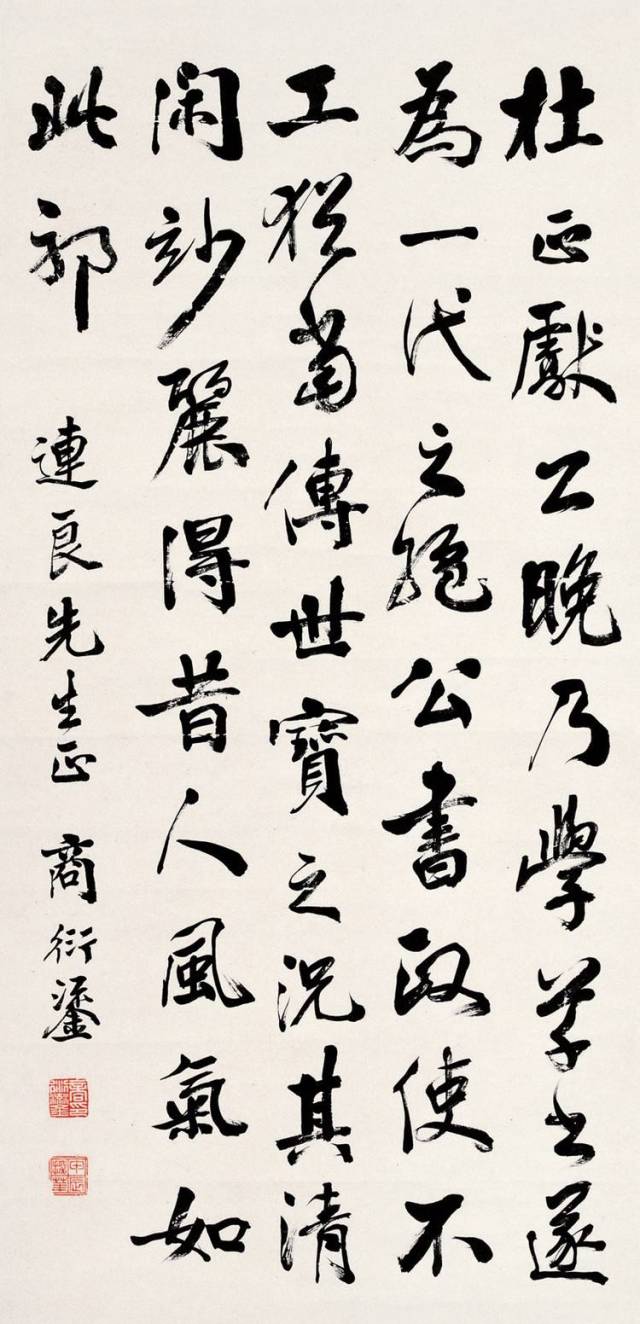 杜正獻公晚乃學草書遂
為一代之絶公書政使不
工猶當傳世寶之況其清
閑妙麗得昔人風氣如
此邪
連良先生正 商衍鎏